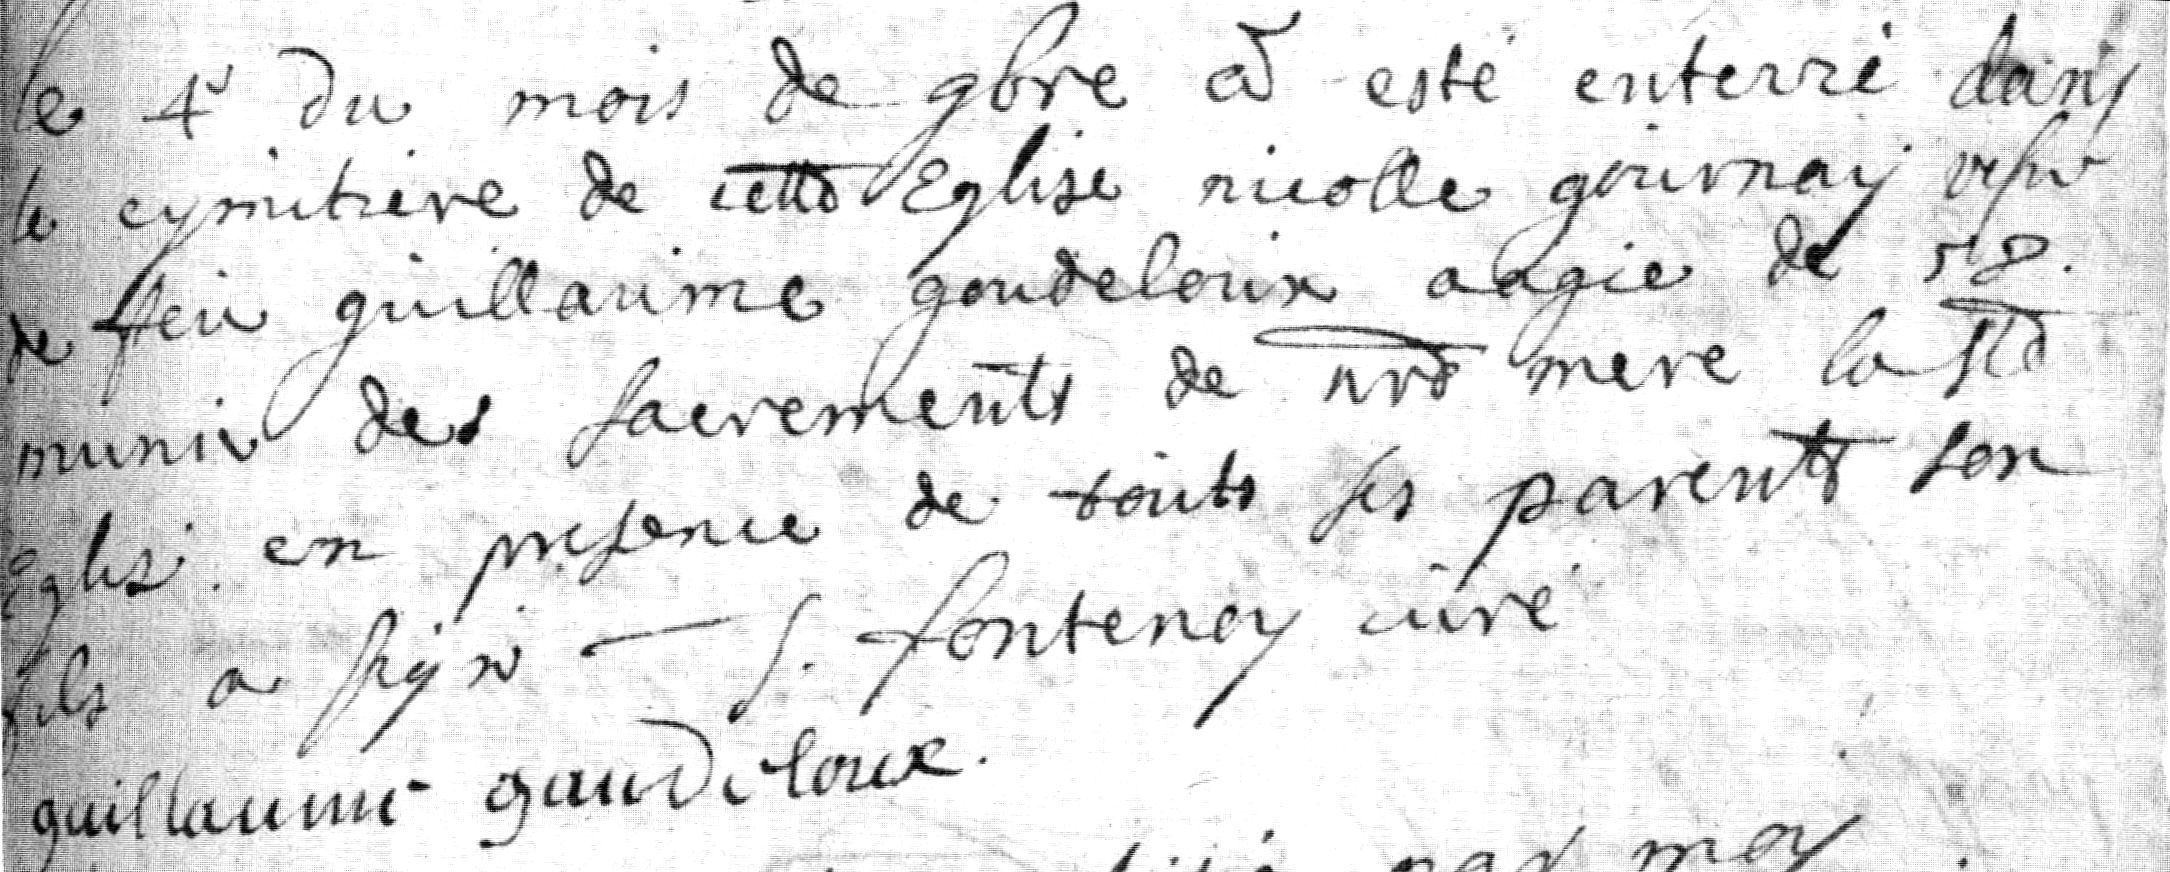 le 4e du mois de 9bre a esté enterré dans
le cymitiere de cette Eglise nicolle gournay vefve
de feu guillaume goudeloux aagie de 58.
munie des sacrements de nre mere la ste
Eglise. en presence de touts ses parents son
fils a signé — S. fontenoy curé
guillaume gaudeloux.
par moy